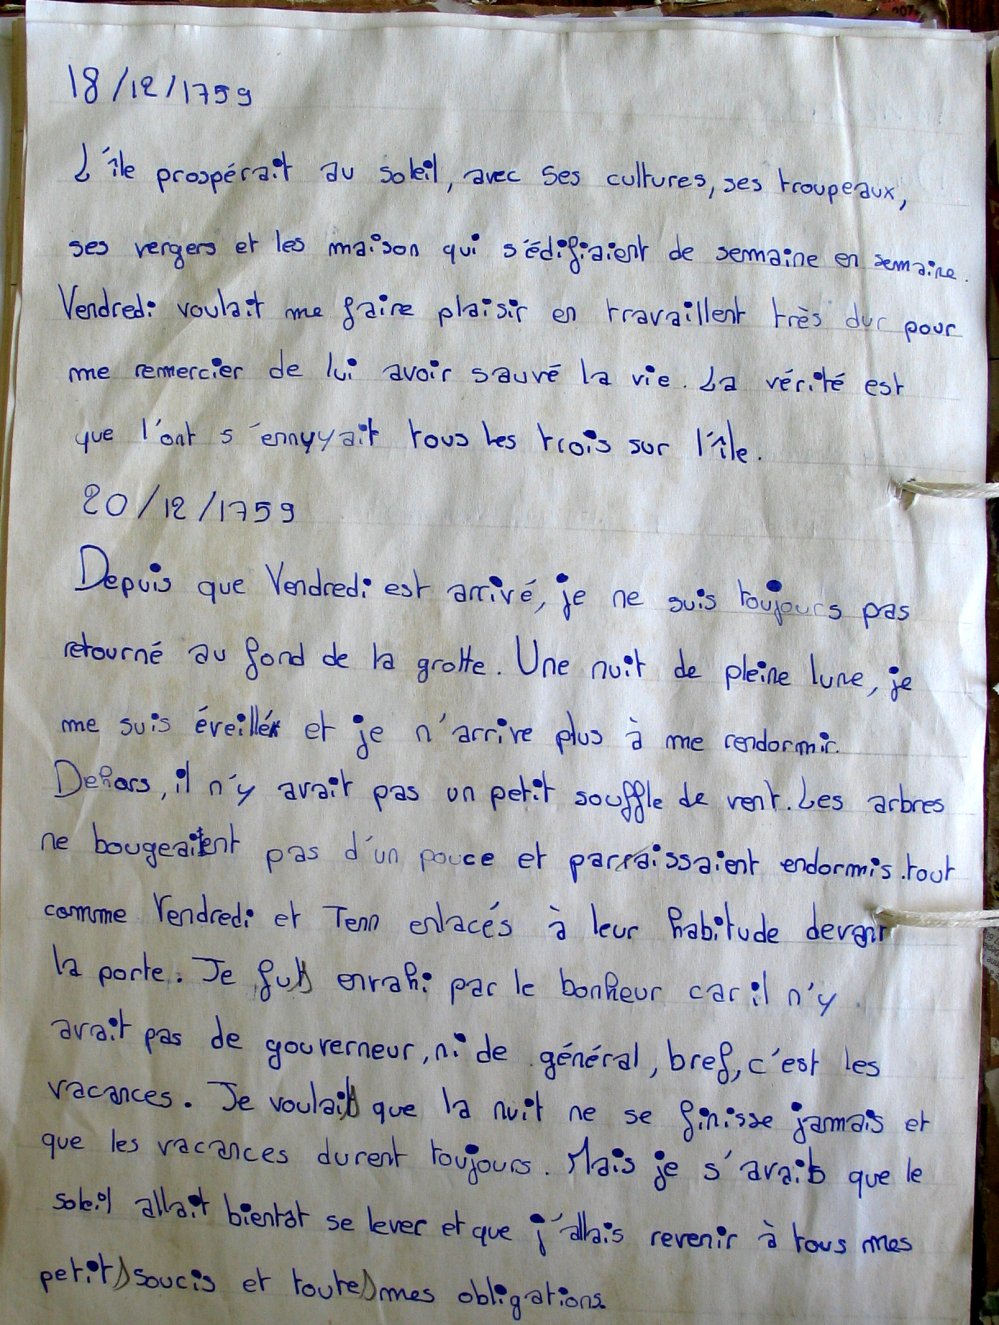 18/12/1759
L'île prospérait au soleil, avec ses cultures, ses troupeaux,
ses vergers et les maison qui s'édifiaient de semaine en semaine.
Vendredi voulait me faire plaisir en travaillent très dur pour
me remercier de lui avoir sauvé la vie. La vérité est
que l'ont s'ennyyait tous les trois sur l'île.
20/12/1759
Depuis que Vendredi est arrivé, je ne suis toujours pas
retourné au fond de la grotte. Une nuit de pleine lune, je
me suis éveillé et je n'arrive plus à me rendormir.
Dehors, il n'y avait pas un petit souffle de vent. Les arbres
ne bougeaient pas d'un pouce et parraissaient endormis. tout
comme Vendredi et Tenn enlacés à leur habitude devant
la porte. Je fus envahi par le bonheur car il n'y
avait pas de gouverneur, ni de général, bref, c'est les
vacances. Je voulais que la nuit ne se finisse jamais et
que les vacances durent toujours. Mais je s'avais que le
soleil allait bientot se lever et que j'allais revenir à tous mes
petits soucis et toutes mes obligations.